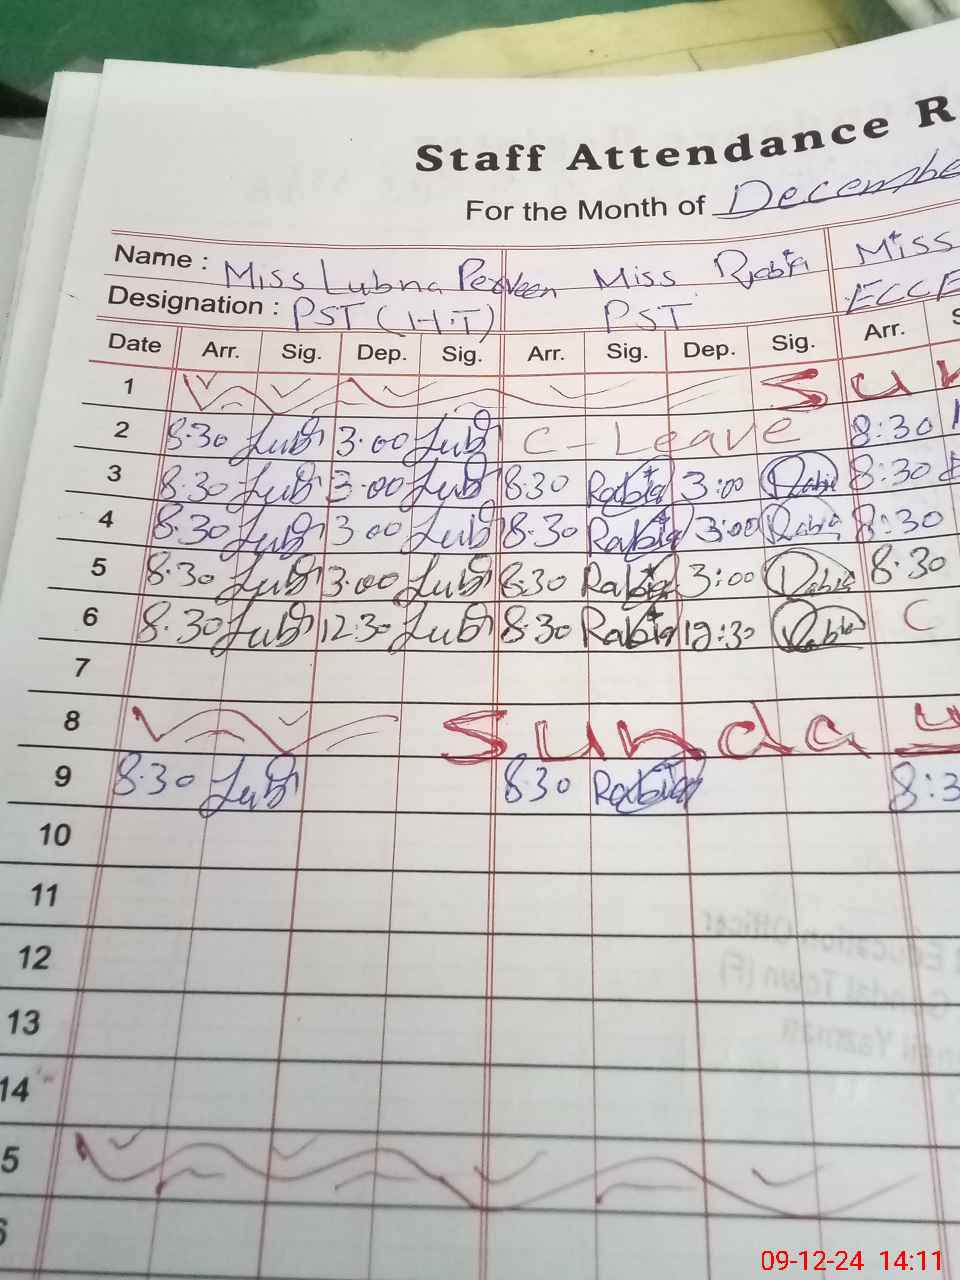 Staff Attendance R
For the Month of December
Name : Miss Lubna Perveen Miss Rabia Miss
Designation : PST (H.T) PST ECCE
Date Arr. Sig. Dep. Sig. Arr. Sig. Dep. Sig. Arr. S
1 Sun
2 8.30 Lub 3.00 Lub C-Leave 8:30
3 8.30 Lub 3.00 Lub 8.30 Rabia 3:00 Rabia 8:30
4 8.30 Lub 3.00 Lub 8.30 Rabia 3:00 Rabia 8:30
5 8.30 Lub 3.00 Lub 8.30 Rabia 3:00 Rabia 8.30
6 8.30 Lub 12.30 Lub 8.30 Rabia 12:30 Rabia C
7
8 Sunday
9 8.30 Lub 8.30 Rabia 8:3
10
11
12
13
14
5
6
09-12-24 14:11